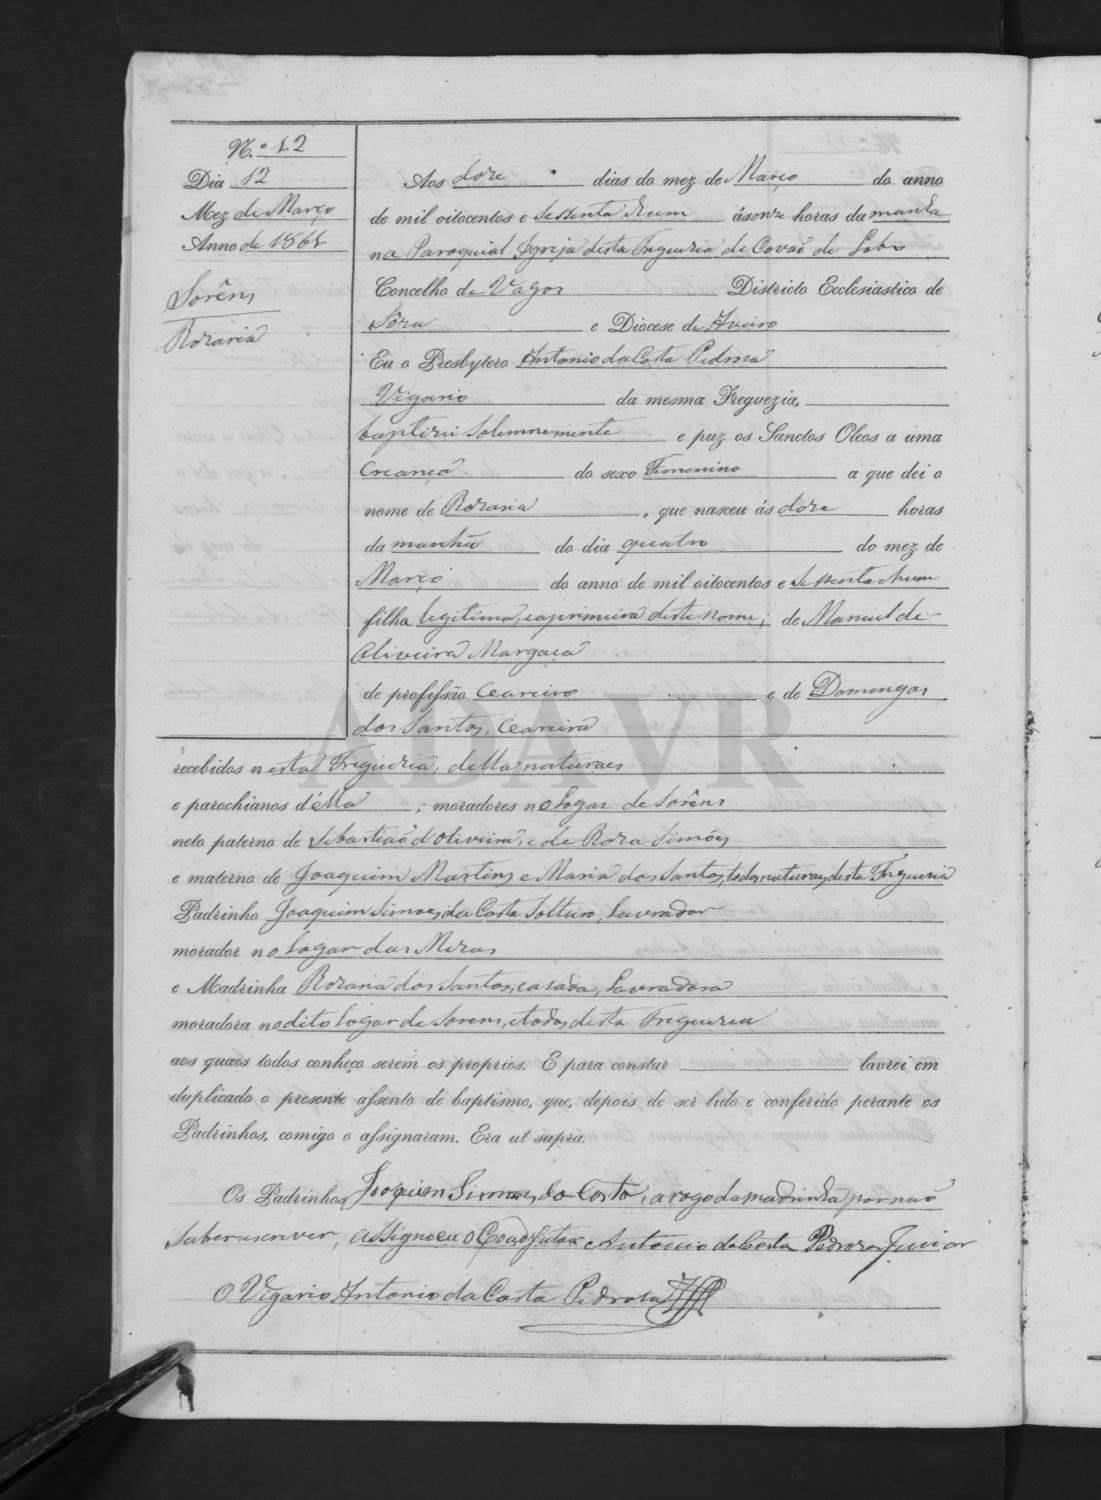 N.º 12
Dia 12
Mez de Março
Anno de 1861
Sorêns
Rozaria
Aos doze dias do mez de Março do anno
de mil oitocentos e sessenta e um ás onze horas da manhã
na Paroquial Igreja desta Freguezia de Covaõ do Lobo
Concelho de Vagos Districto Ecclesiastico de
Sôza e Diocese de Aveiro
Eu o Presbytero Antonio da Costa Pedroza
Vigario da mesma Freguezia,
baptizei Solemnemente e puz os Sanctos Oleos a uma
Creança do sexo Femenino a que dei o
nome de Rozaria, que nasceu ás doze horas
da manhã do dia quatro do mez de
Março do anno de mil oitocentos e sessenta e hum
filha legitima, e a primeira deste nome; de Manuel de
Oliveira Margaça
de profissão Ceareiro e de Domingas
dos Santos, Ceareira
recebidos nesta Freguezia, della naturaes
e parochianos d'ella; moradores no Logar de Sorêns
neto paterno de Sebastiaõ d'Oliveira, e de Roza Simões
e materno de Joaquim Martins e Maria dos Santos, todos naturaes desta Freguezia
Padrinho Joaquim Simoes da Costa Solteiro, Lavrador
morador no Logar das Mezas
e Madrinha Rozaria dos Santos, casada, Lavradora
moradora no dito Logar de Sorens, e todos desta Freguezia
aos quaes todos conheço serem os proprios. E para constar lavrei em
duplicado o presente assento de baptismo, que, depois de ser lido e conferido perante os
Padrinhos, comigo o assignaram. Era ut supra.
Os Padrinhos Joaquim Simoes da Costa, a rogo da madrinha por naõ
saber escrever, assigno eu o Coadjutor Antonio da Costa Pedroza Junior
O Vigario Antonio da Costa Pedroza
ADAVR